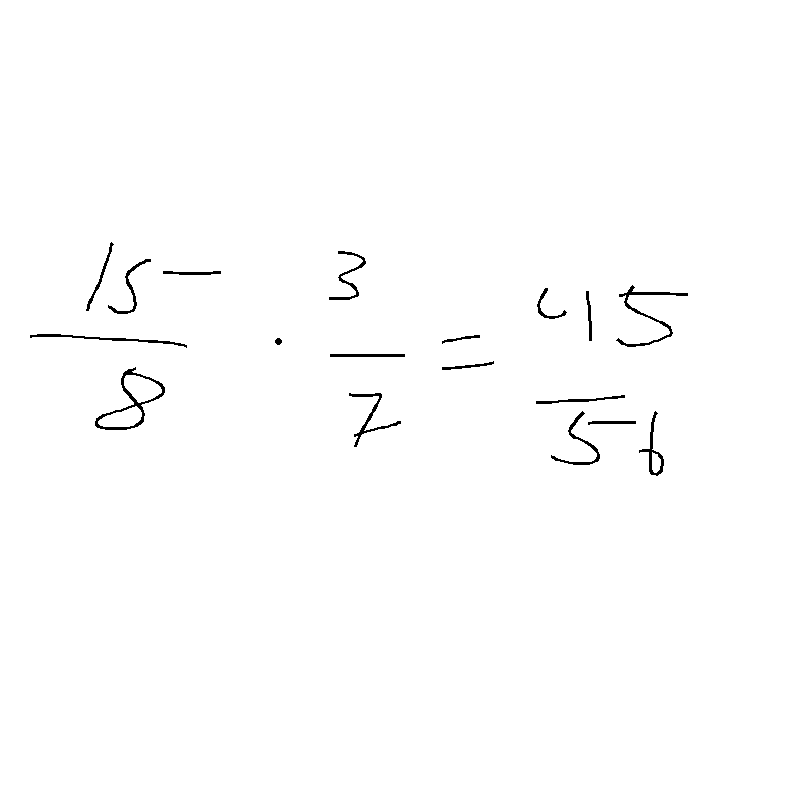 15/8 · 3/7 = 45/56